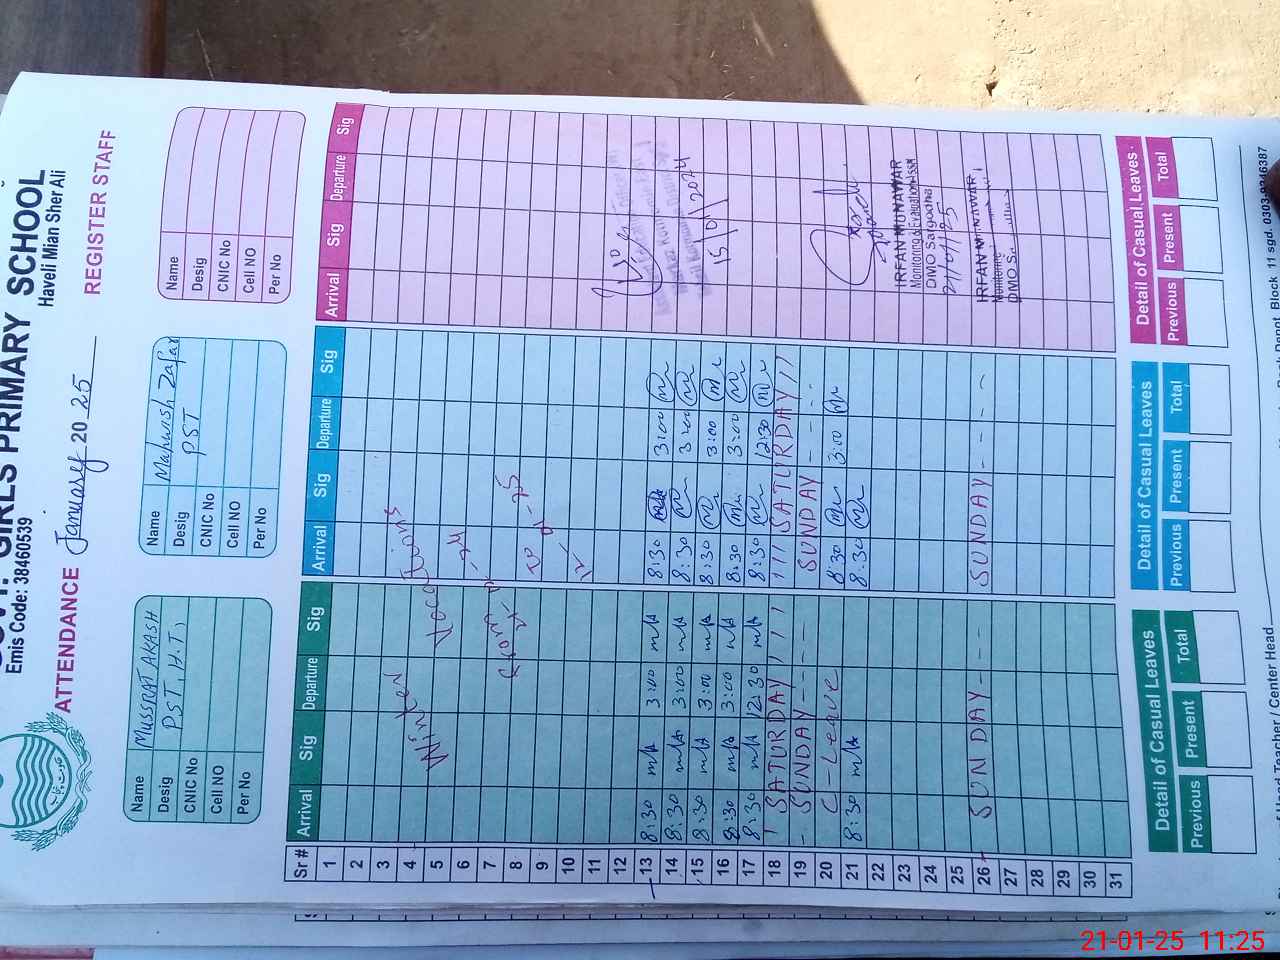 GIRLS PRIMARY SCHOOL
Emis Code: 38460539
Haveli Mian Sher Ali
ATTENDANCE January 2025 REGISTER STAFF
Name MUSSRAT AKASH
Desig PST, H.T,
CNIC No
Cell NO
Per No
Name Mahwish Zafar
Desig PST
CNIC No
Cell NO
Per No
Name
Desig
CNIC No
Cell NO
Per No
Sr # Arrival Sig Departure Sig Arrival Sig Departure Sig Arrival Sig Departure Sig
1
2
3
4 Winter
5
6
7
8
9
10
11
12
13 8:30 m/A 3:00 m/A 8:30 3:00
14 8:30 m/A 3:00 m/A 8:30 3:00
15 8:30 m/A 3:00 m/A 8:30 3:00 15/01/2024
16 8:30 m/A 3:00 m/A 8:30 3:00
17 8:30 m/A 12:30 m/A 8:30 12:30
18 SATURDAY SATURDAY
19 SUNDAY SUNDAY
20 C-Leave 8:30 3:00
21 8:30 m/A 8:30
22
23 IRFAN MUNAWAR
Monitoring & Evaluation Asst
24 DMO Sargodha
25 21/01/25
26 SUNDAY SUNDAY IRFAN MUNAWAR
27
28
29
30
31
Detail of Casual Leaves
Previous Present Total
Detail of Casual Leaves
Previous Present Total
Detail of Casual Leaves
Previous Present Total
Head Teacher / Center Head
Block 11 sgd.
21-01-25 11:25